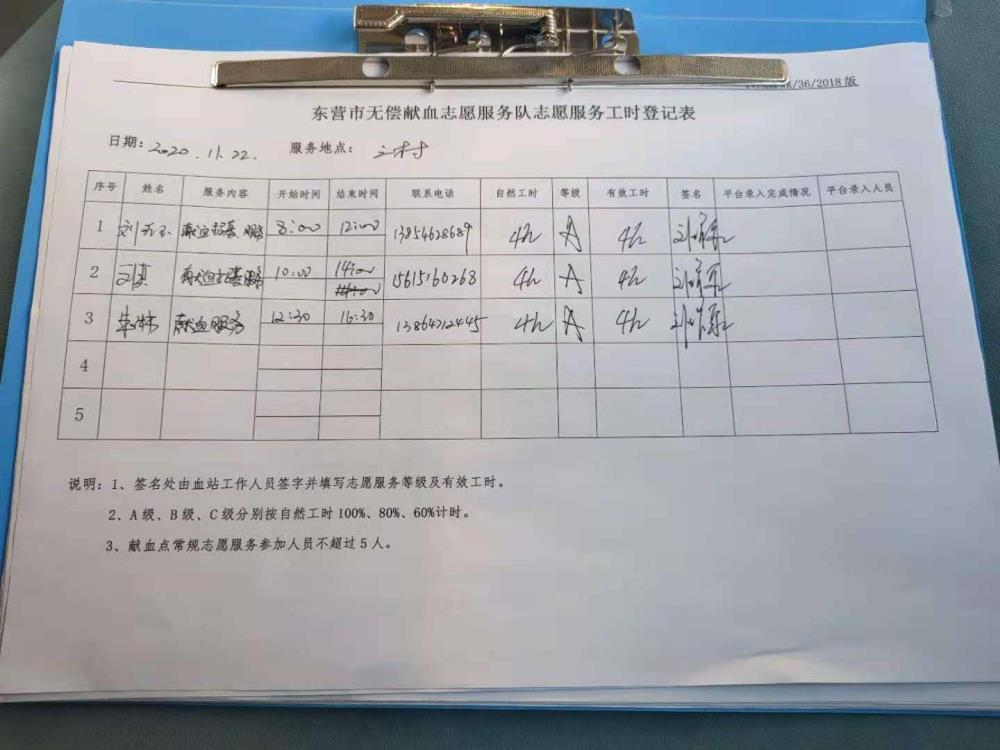 /36/2018 版
东营市无偿献血志愿服务队志愿服务工时登记表
日期: 2020.11.22. 服务地点:
序号 姓名 服务内容 开始时间 结束时间 联系电话 自然工时 等级 有效工时 签名 平台录入完成情况 平台录入人员
1 献血招募、服务 8:00 12:00 13854628689 4h A 4h
2 献血招募服务 10:00 14:00 15615160268 4h A 4h
3 献血服务 12:30 16:30 13864712445 4h A 4h
4
5
说明: 1、签名处由血站工作人员签字并填写志愿服务等级及有效工时。
2、A 级、B 级、C 级分别按自然工时 100%、80%、60%计时。
3、献血点常规志愿服务参加人员不超过 5 人。